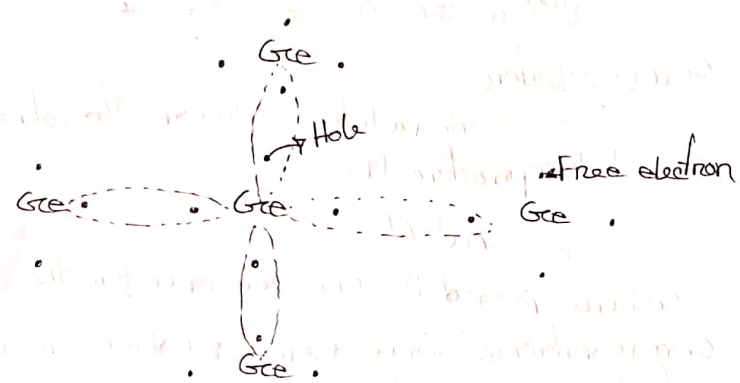 Ge
Hole
Free electron
Ge
Ge
Ge
Ge